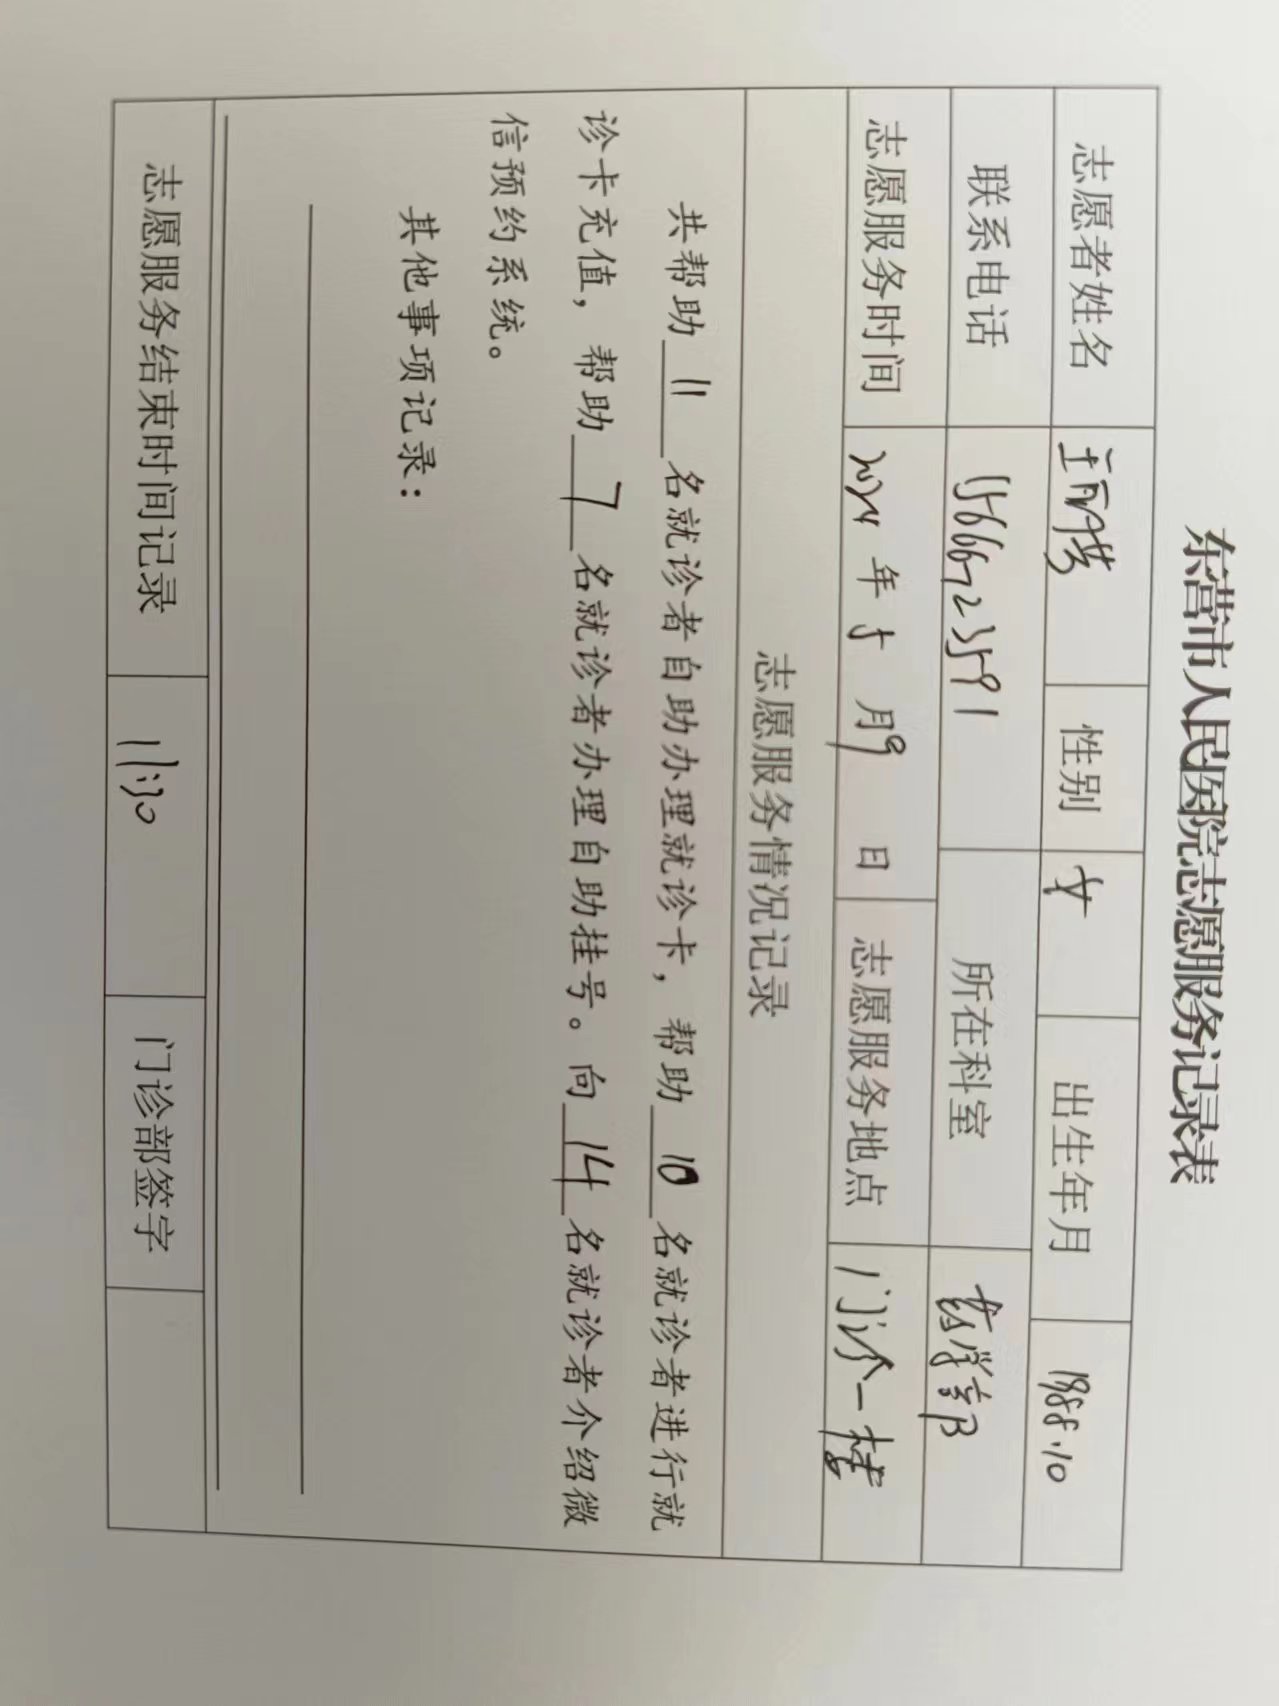 东营市人民医院志愿服务记录表
志愿者姓名 王 性别 女 出生年月 1988.10
联系电话 15666723591 所在科室 药学部
志愿服务时间 2024年5月9日 志愿服务地点 门诊一楼
志愿服务情况记录
共帮助 11 名就诊者自助办理就诊卡，帮助 10 名就诊者进行就
诊卡充值，帮助 7 名就诊者办理自助挂号。向 14 名就诊者介绍微
信预约系统。
其他事项记录：
志愿服务结束时间记录 11:30 门诊部签字